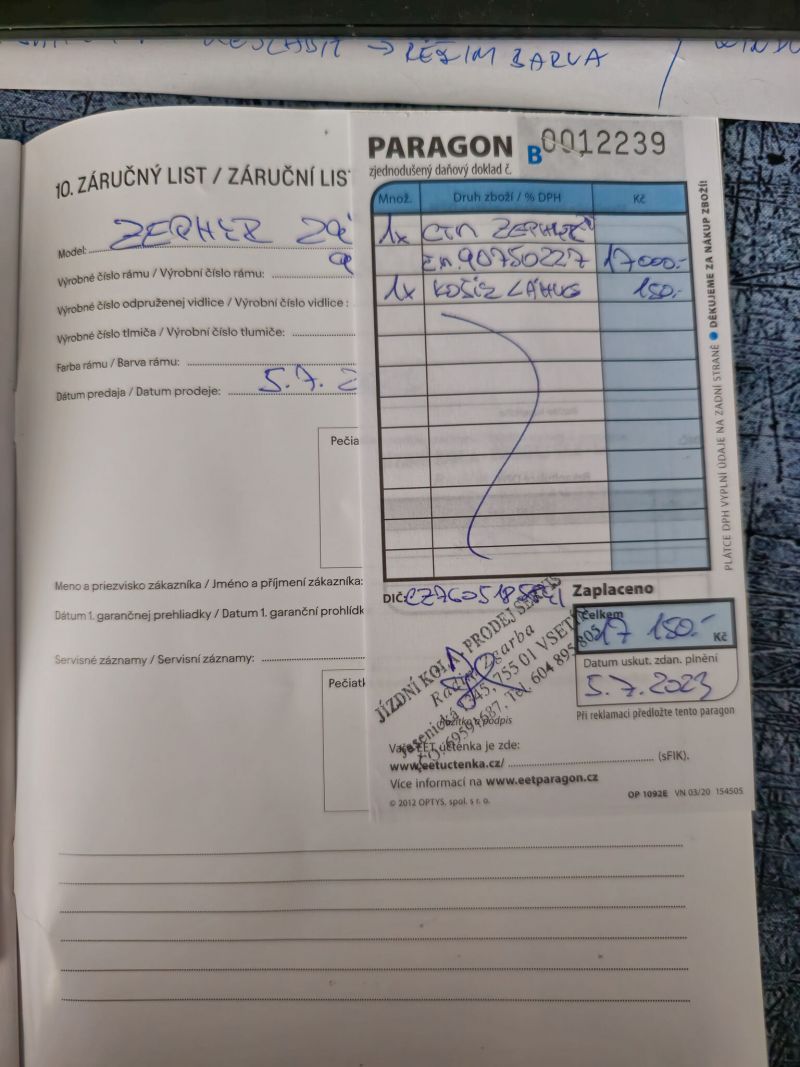 → REŽIM BARVA
10. ZÁRUČNÝ LIST / ZÁRUČNÍ LIS
Model: ZEPHER
Výrobné číslo rámu / Výrobní číslo rámu:
Výrobné číslo odpruženej vidlice / Výrobní číslo vidlice :
Výrobné číslo tlmiča / Výrobní číslo tlumiče:
Farba rámu / Barva rámu:
Dátum predaja / Datum prodeje: 5.7. 2
Pečia
Meno a priezvisko zákazníka / Jméno a příjmení zákazníka:
Dátum 1. garančnej prehliadky / Datum 1. garanční prohlídk
Servisné záznamy / Servisní záznamy:
Pečiatk
PARAGON B 0012239
zjednodušený daňový doklad č.
Množ. Druh zboží / % DPH Kč
1x CTM ZEPHER
90750227 17000.-
1x KOŠÍK LÁHVE 150.-
DIČ:
Zaplaceno
celkem
17 150.- Kč
Datum uskut. zdan. plnění
5.7.2023
Při reklamaci předložte tento paragon
JÍZDNÍ KOLA PRODEJ SERVIS
Radim Zgarba
Jasenická 1345, 755 01 VSETÍ
Tel. 604 895 805
Razítko a podpis
Vaše EET účtenka je zde:
www.eetuctenka.cz/ (sFIK).
Více informací na www.eetparagon.cz
© 2012 OPTYS, spol. s r. o. OP 1092E VN 03/20 154505
PLÁTCE DPH VYPLNÍ ÚDAJE NA ZADNÍ STRANĚ ● DĚKUJEME ZA NÁKUP ZBOŽÍ!